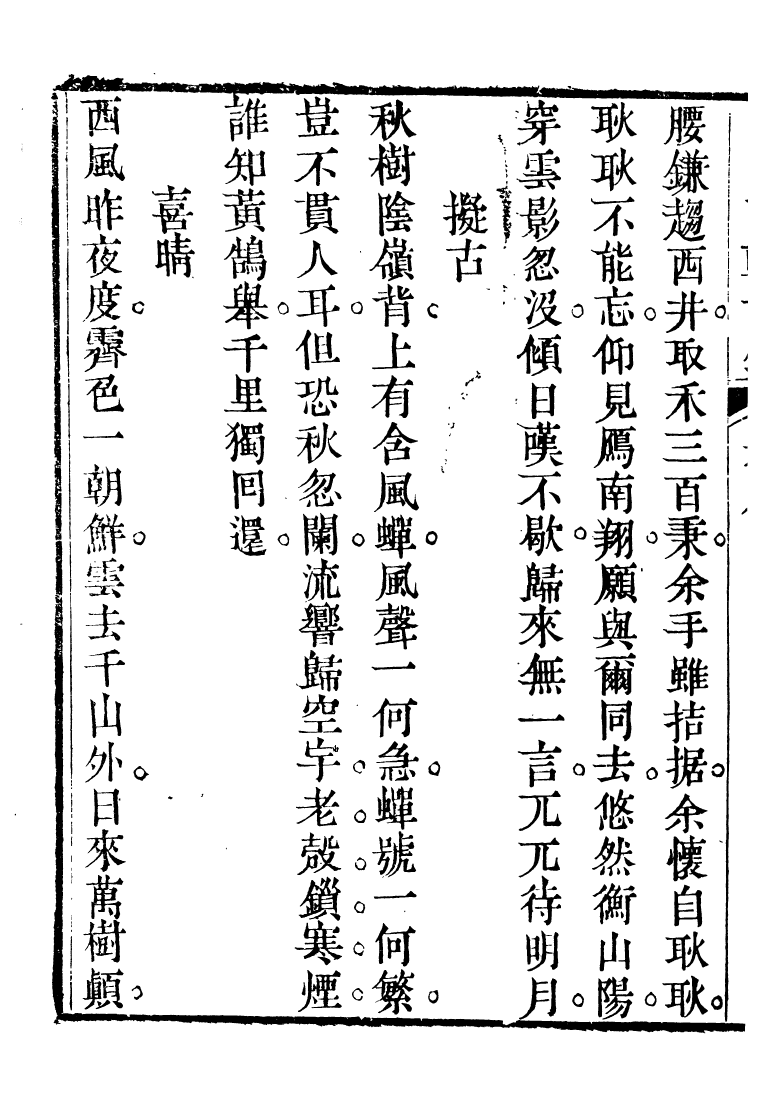 腰鎌趨西井。取禾三百秉。余手雖拮据。余懷自耿耿。
耿耿不能忘。仰見鴈南翔。願與爾同去。悠然衡山陽。
穿雲影忽没。傾日嘆不歇。歸來無一言。兀兀待明月。
擬古
秋樹陰嶺背。上有含風蟬。風聲一何急。蟬號一何繁。
豈不貫人耳。但恐秋忽闌。流響歸空宇。老殼鎖寒煙。
誰知黃鵠舉。千里獨回還。
喜晴
西風昨夜度。霽色一朝鮮。雲去千山外。日來萬樹顛。